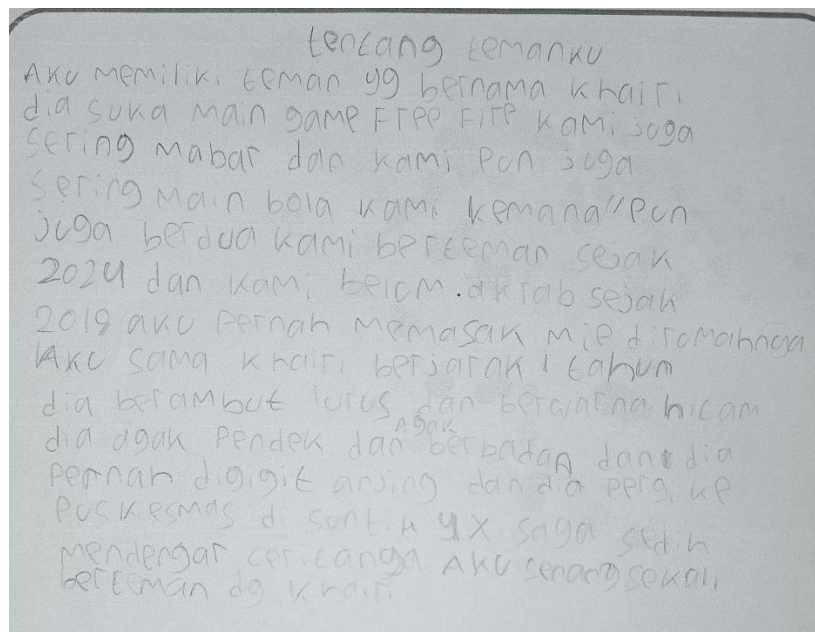 tentang temanku
Aku memiliki teman yg bernama khairi
dia suka main game Free Fire kami juga
sering mabar dan kami pun juga
sering main bola kami kemana"pun
juga berdua kami berteman sejak
2024 dan kami belum.akrab sejak
2019 aku pernah memasak mie dirumahnya
Aku sama khairi berjarak 1 tahun
dia berambut lurus dan berwarna hitam
dia agak pendek dan Agak berbadan dan dia
pernah digigit anjing dan dia pergi ke
puskesmas di suntik 4x saya sedih
mendengar ceritanya Aku senang sekali
berteman dg khairi